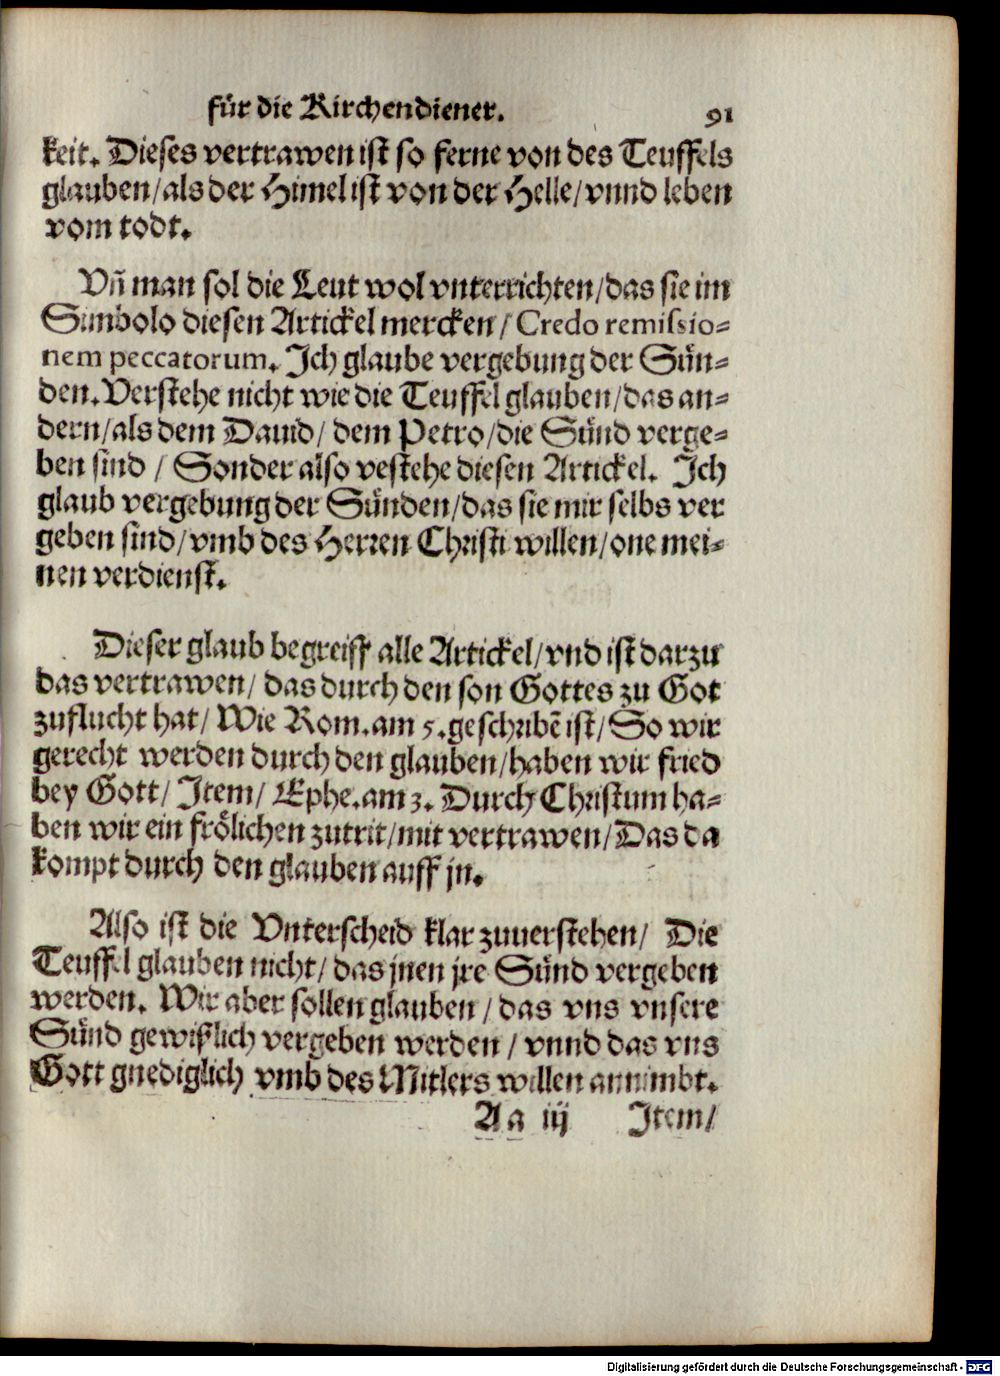 für die Kirchendiener. 91
keit. Dieses vertrawen ist so ferne von des Teuffels
glauben/als der Himel ist von der Helle/vnnd leben
vom todt.
Vñ man sol die Leut wol vnterrichten/das sie im
Simbolo diesen Artickel mercken/ Credo remissio-
nem peccatorum. Ich glaube vergebung der Sün-
den. Verstehe nicht wie die Teuffel glauben/das an-
dern/als dem Dauid/ dem Petro/die Sünd verge-
ben sind / Sonder also vestehe diesen Artickel. Ich
glaub vergebung der Sünden/das sie mir selbs ver
geben sind/vmb des Herren Christi willen/one mei-
nen verdienst.
Dieser glaub begreiff alle Artickel/vnd ist darzu
das vertrawen/ das durch den son Gottes zu Got
zuflucht hat/ Wie Rom. am 5. geschribẽ ist/ So wir
gerecht werden durch den glauben/haben wir fried
bey Gott/ Item/ Ephe. am 3. Durch Christum ha-
ben wir ein frölichen zutrit/mit vertrawen/Das da
kompt durch den glauben auff jn.
Also ist die Vnterscheid klar zuuerstehen/ Die
Teuffel glauben nicht/ das jnen jre Sünd vergeben
werden. Wir aber sollen glauben / das vns vnsere
Sünd gewißlich vergeben werden / vnnd das vns
Gott gnediglich vmb des Mitlers willen annimbt.
Aa iij Item/
Digitalisierung gefördert durch die Deutsche Forschungsgemeinschaft - DFG